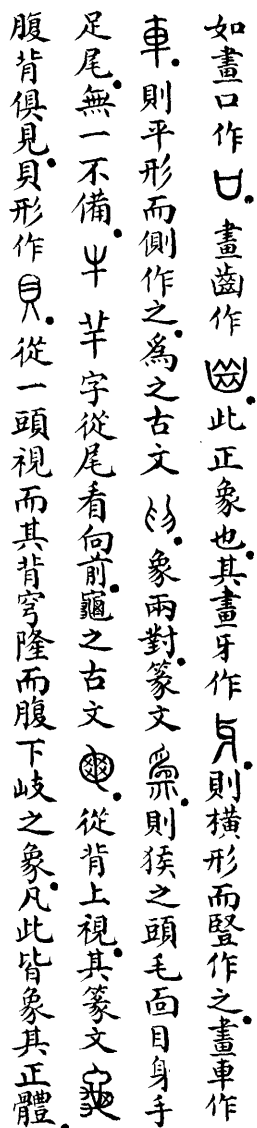 如畫口作𠙵。畫齒作𦥒。此正象也。其畫牙作𤘈。則橫形而豎作之。畫車作
車。則平形而側作之。爲之古文。象兩對。篆文爲。則猴之頭毛面目身手
足尾。無一不備。牛𦍌字從尾看向前。龜之古文。從背上視。其篆文龜
腹背俱見。貝形作貝。從一頭視而其背穹隆而腹下岐之象。凡此皆象其正體。